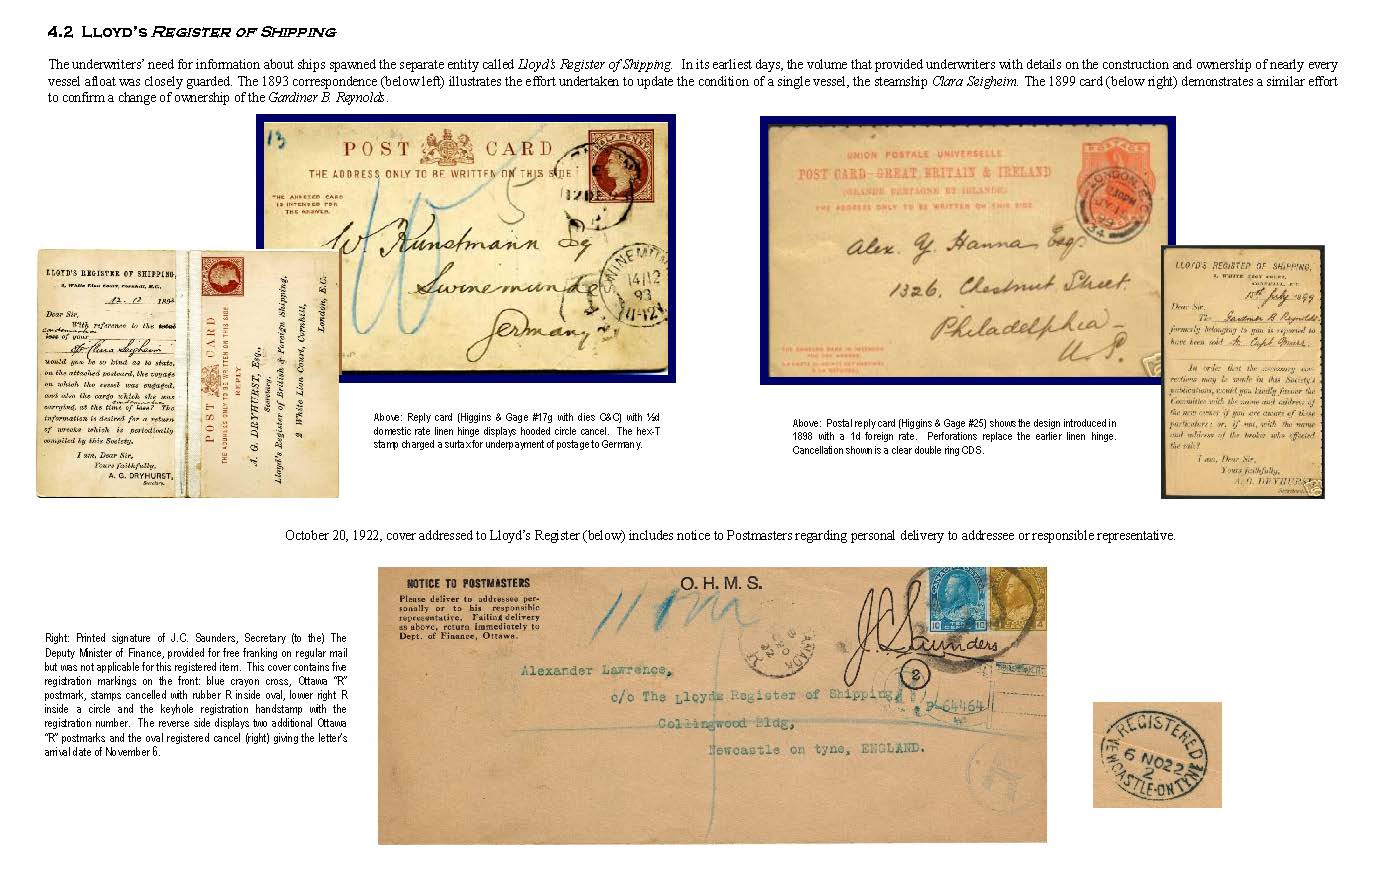 4.2 LLOYD'S REGISTER OF SHIPPING
The underwriters' need for information about ships spawned the separate entity called Lloyd's Register of Shipping. In its earliest days, the volume that provided underwriters with details on the construction and ownership of nearly every
vessel afloat was closely guarded. The 1893 correspondence (below left) illustrates the effort undertaken to update the condition of a single vessel, the steamship Clara Seigheim. The 1899 card (below right) demonstrates a similar effort
to confirm a change of ownership of the Gardiner B. Reynolds.
13
POST CARD
THE ADDRESS ONLY TO BE WRITTEN ON THIS SIDE.
THE ANNEXED CARD
IS INTENDED FOR
THE ANSWER.
10
5
W Kunstmann Esq
Swinemunde
Germany
SWINEMÜN
14/12
93
11-12
UNION POSTALE UNIVERSELLE
POST CARD-GREAT BRITAIN & IRELAND
(GRANDE BRETAGNE ET IRLANDE)
THE ADDRESS ONLY TO BE WRITTEN ON THIS SIDE
POSTAGE
LONDON, E.C.
34
Alex. Y. Hanna, Esq.
1326, Chestnut Street.
Philadelphia-
U.S.
THE ANNEXED CARD IS INTENDED
FOR THE ANSWER
LLOYD'S REGISTER OF SHIPPING,
2, White Lion Court, Cornhill, E.C.,
12. 12 189
Dear Sir,
With reference to the total
condemnation
loss of your
Str Clara Seigheim
would you be so kind as to state,
on the attached postcard, the voyage
on which the vessel was engaged,
and also the cargo which she was
condemnation
carrying, at the time of loss? The
information is desired for a return
of wrecks which is periodically
compiled by this Society.
I am, Dear Sir,
Yours faithfully,
A. G. DRYHURST,
Secretary.
POST CARD
THE ADDRESS ONLY TO BE WRITTEN ON THIS SIDE
REPLY
A. G. DRYHURST, Esq.,
Secretary,
Lloyd's Register of British & Foreign Shipping,
2 White Lion Court, Cornhill,
London, E.C.
LLOYD'S REGISTER OF SHIPPING,
2, WHITE LION COURT,
CORNHILL, E.C.
10th July 1899
Dear Sir,
The Gardiner B Reynolds
formerly belonging to you is reported to
have been sold to Capt
In order that the necessary cor-
rections may be made in this Society's
publications, would you kindly favour the
Committee with the name and address of
the new owner if you are aware of these
particulars; or, if not, with the name
and address of the broker who effected
the sale?
I am, Dear Sir,
Yours faithfully,
A. G. DRYHURST
Secretary
Above: Reply card (Higgins & Gage #17g with dies C&C) with ½d
domestic rate linen hinge displays hooded circle cancel. The hex-T
stamp charged a surtax for underpayment of postage to Germany.
Above: Postal reply card (Higgins & Gage #25) shows the design introduced in
1898 with a 1d foreign rate. Perforations replace the earlier linen hinge.
Cancellation shown is a clear double ring CDS.
October 20, 1922, cover addressed to Lloyd's Register (below) includes notice to Postmasters regarding personal delivery to addressee or responsible representative.
NOTICE TO POSTMASTERS
Please deliver to addressee per-
sonally or to his responsible
representative. Failing delivery
as above, return immediately to
Dept. of Finance, Ottawa.
O.H.M.S.
CANADA POSTAGE
10 TEN CENTS 10
J.C. Saunders
2
Alexander Lawrence,
c/o The Lloyds Register of Shipping,
64464
Collingwood Bldg,
Newcastle on tyne, ENGLAND.
R
Right: Printed signature of J.C. Saunders, Secretary (to the) The
Deputy Minister of Finance, provided for free franking on regular mail
but was not applicable for this registered item. This cover contains five
registration markings on the front: blue crayon cross, Ottawa "R"
postmark, stamps cancelled with rubber R inside oval, lower right R
inside a circle and the keyhole registration handstamp with the
registration number. The reverse side displays two additional Ottawa
"R" postmarks and the oval registered cancel (right) giving the letter's
arrival date of November 6.
REGISTERED
6 NO 22
2
NEWCASTLE-ON TYNE